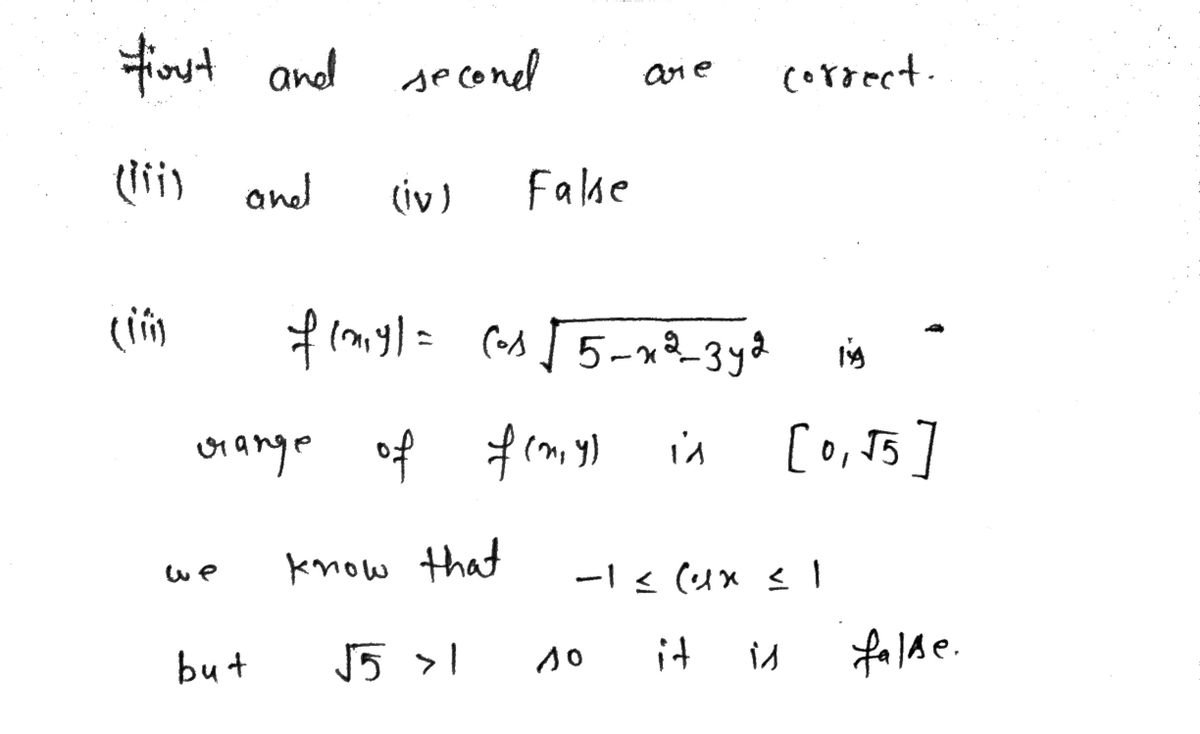 First and second are correct.
(iii) and (iv) False
(iii) f(x,y) = Cos √5-x²-3y² is -
range of f(x,y) is [0,√5]
we know that -1 ≤ Cosx ≤ 1
but √5 >1 so it is false.